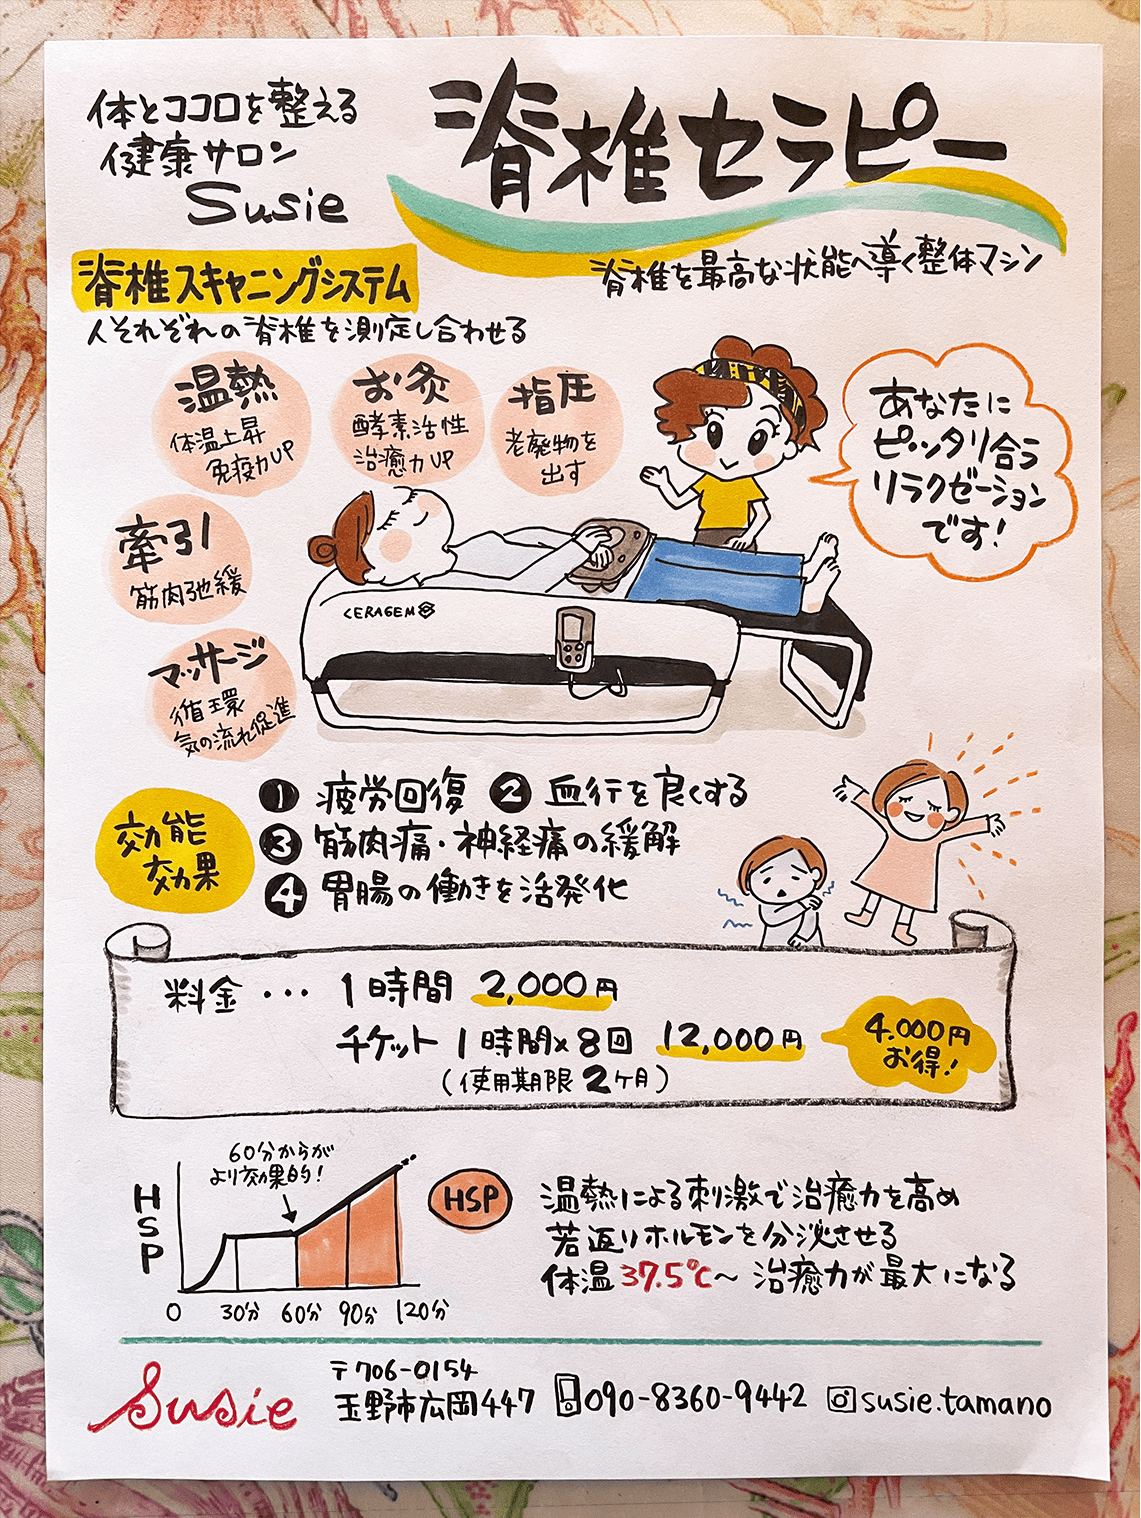 体とココロを整える
健康サロン
Susie
脊椎セラピー
脊椎を最高な状態へ導く整体マシン
脊椎スキャニングシステム
人それぞれの脊椎を測定し合わせる
温熱
体温上昇
免疫力UP
お灸
酵素活性
治癒力UP
指圧
老廃物を
出す
牽引
筋肉弛緩
マッサージ
循環
気の流れ促進
あなたに
ピッタリ合う
リラクゼーション
です!
CERAGEM
効能
効果
① 疲労回復 ② 血行を良くする
③ 筋肉痛・神経痛の緩解
④ 胃腸の働きを活発化
料金・・・ 1時間 2,000円
チケット 1時間×8回 12,000円
(使用期限 2ヶ月)
4,000円
お得!
60分からが
より効果的!
HSP
0 30分 60分 90分 120分
HSP
温熱による刺激で治癒力を高め
若返りホルモンを分泌させる
体温 37.5℃~ 治癒力が最大になる
Susie
〒706-0154
玉野市広岡447
090-8360-9442
susie.tamano